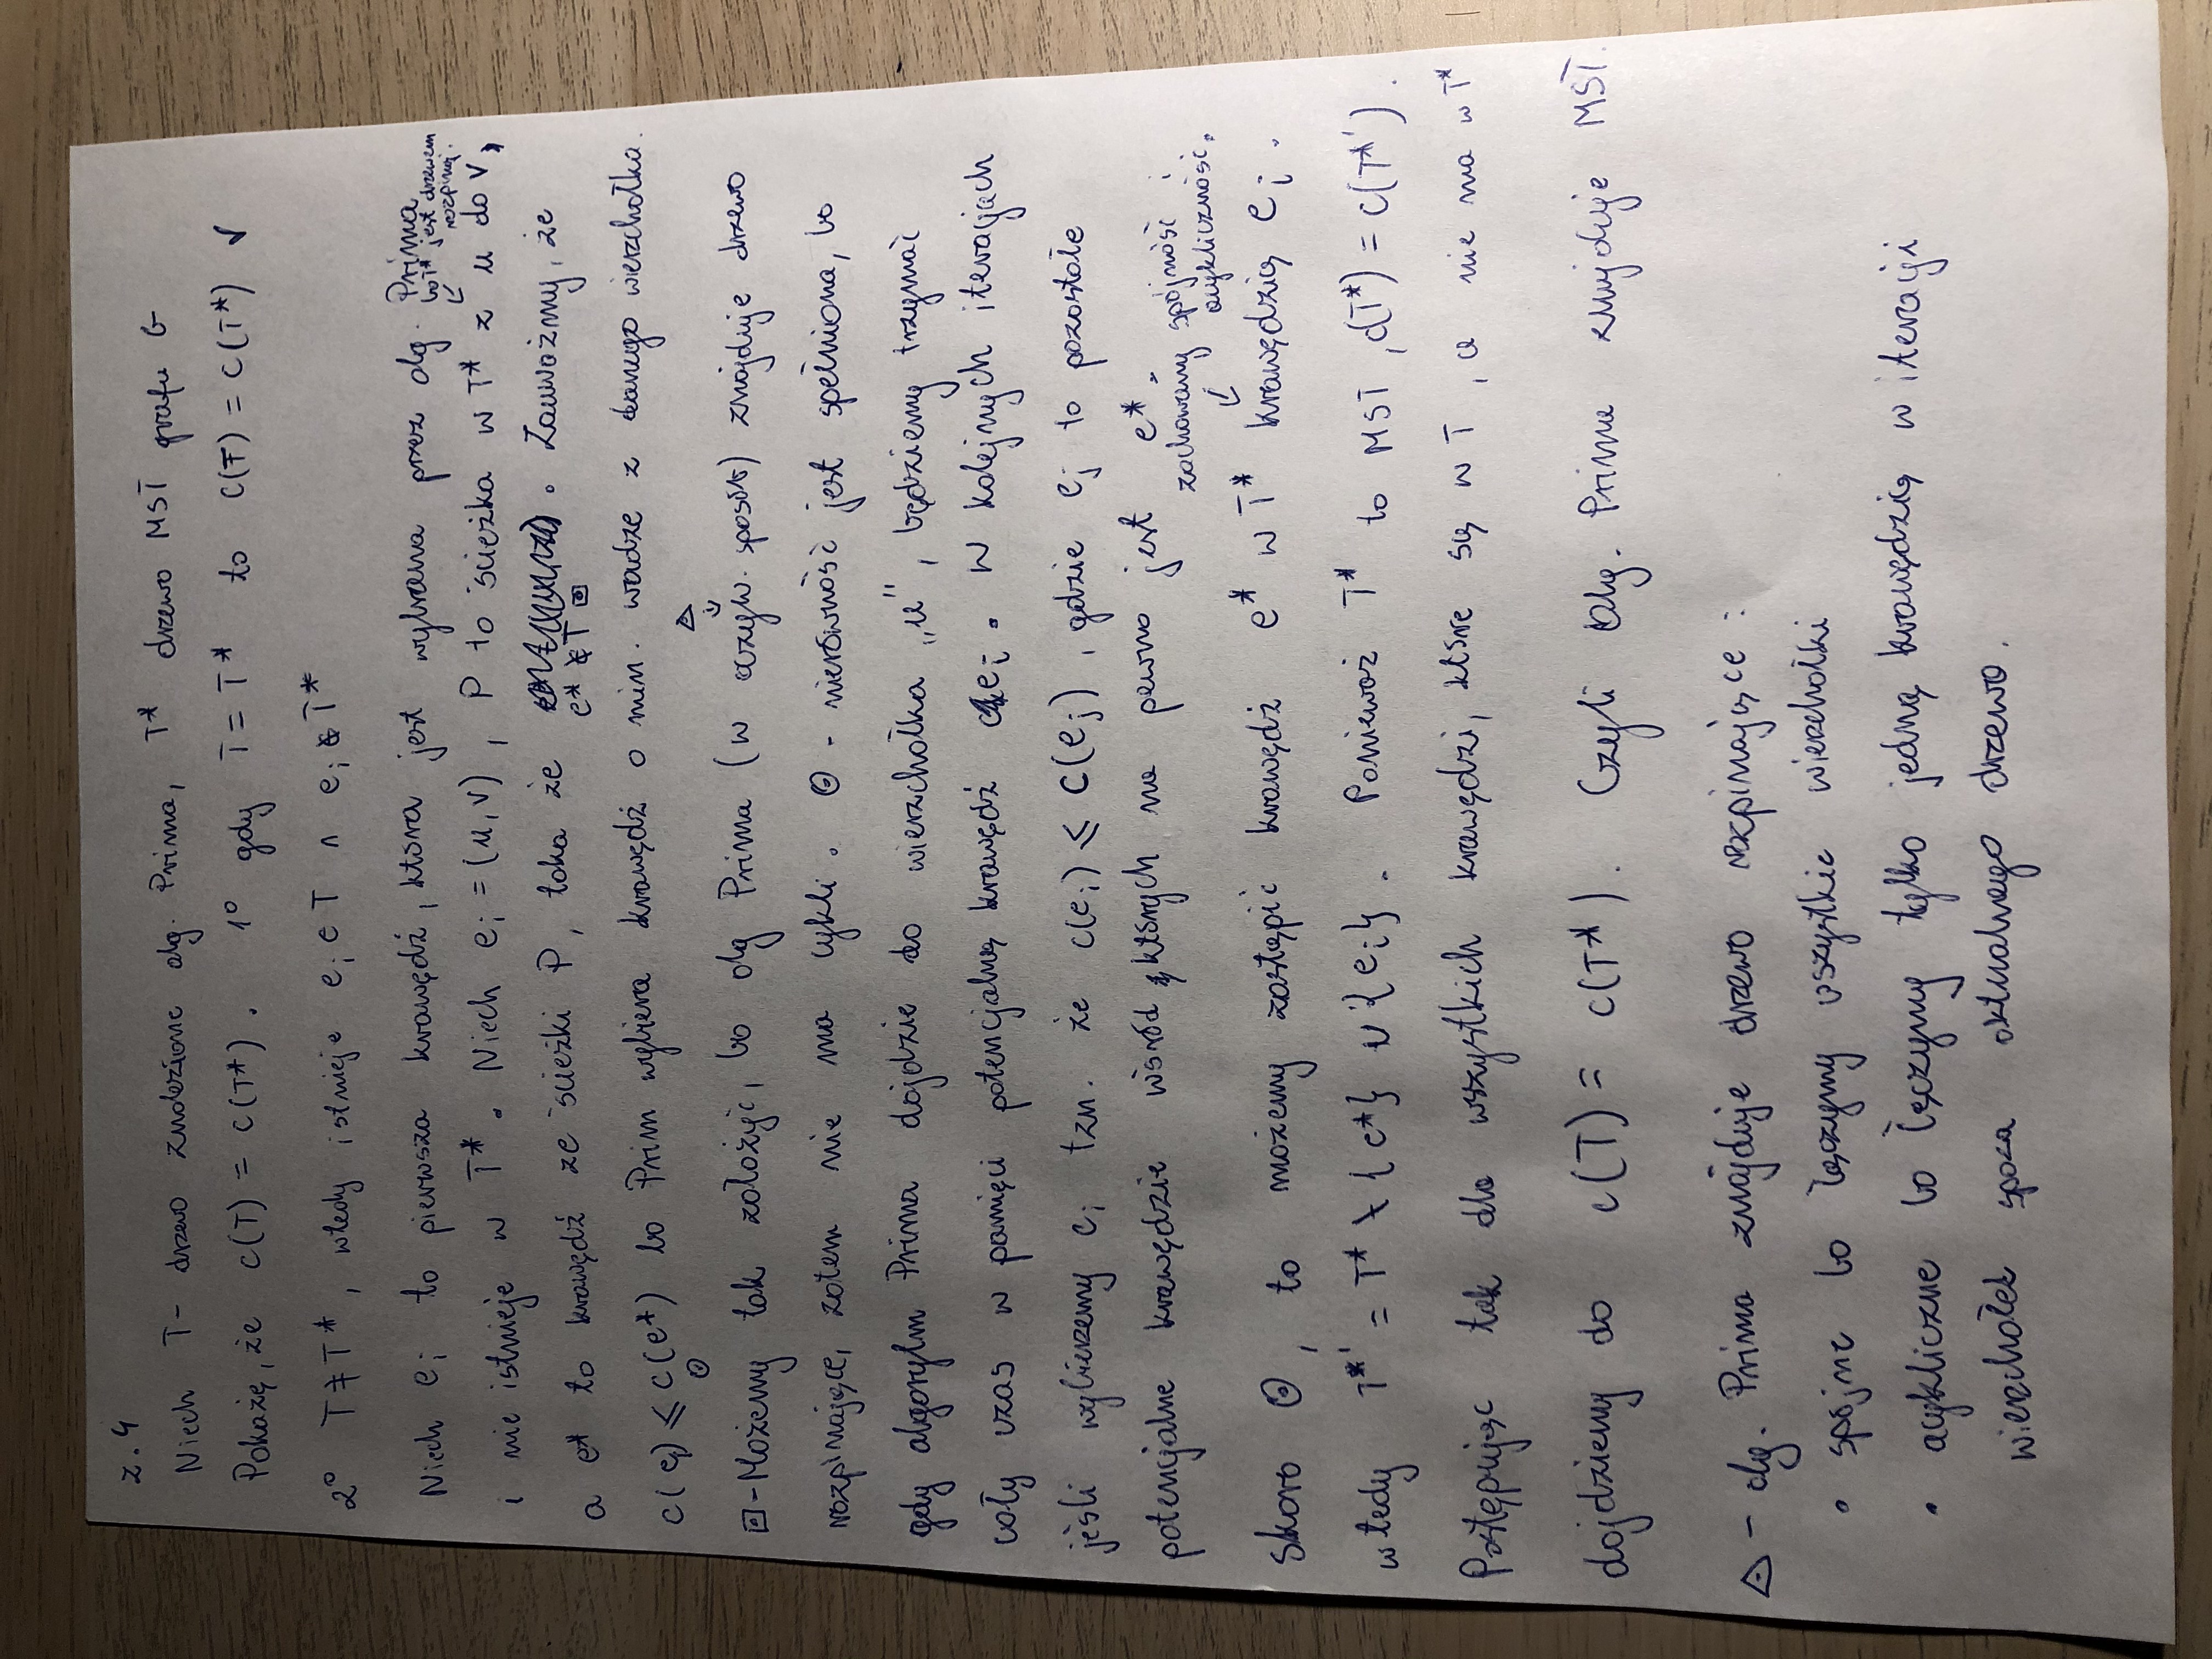 z.4
Niech T- drzewo znalezione alg. Prima, T* drzewo MST grafu G
Pokażę, że c(T) = c(T*). 1° gdy T = T* to c(T) = c(T*) ✓
2° T ≠ T*, wtedy istnieje ei ∈ T ∧ ei ∉ T*
Niech ei to pierwsza krawędź, która jest wybrana przez alg. Prima
bo T* jest drzewem
rozpinaj.
↙
i nie istnieje w T*. Niech ei = (u,v), P to ścieżka w T* z u do v,
a e* to krawędź ze ścieżki P, taka że e* ∉ T ⊡. Zauważmy, że
c(ei) ⩽ c(e*) bo Prim wybiera krawędź o min. wadze z danego wierzchołka.
⊙
△
↓
⊡-Możemy tak założyć, bo alg Prima (w oczyw. sposób) znajduje drzewo
rozpinające, zatem nie ma cykli. ⊙ - nierówność jest spełniona, bo
gdy algorytm Prima dojdzie do wierzchołka „u", będziemy trzymać
cały czas w pamięci potencjalną krawędź ei. W kolejnych iteracjach
jeśli wybierzemy ei tzn. że c(ei) ⩽ c(ej), gdzie ej to pozostałe
potencjalne krawędzie wśród których na pewno jest e*.
zachowamy spójność i
acykliczność.
↙
Skoro ⊙, to możemy zastąpić krawędź e* w T* krawędzią ei.
wtedy T*' = T* \ {e*} ∪ {ei}. Ponieważ T* to MST, c(T*) = c(T*').
Postępując tak dla wszystkich krawędzi, które są w T, a nie ma w T*
dojdziemy do c(T) = c(T*). Czyli alg. Prima znajduje MST.
△ - alg. Prima znajduje drzewo rozpinające:
• spójne bo łączymy wszystkie wierzchołki
• acykliczne bo łączymy tylko jedną krawędzią w iteracji
wierzchołek spoza aktualnego drzewa.